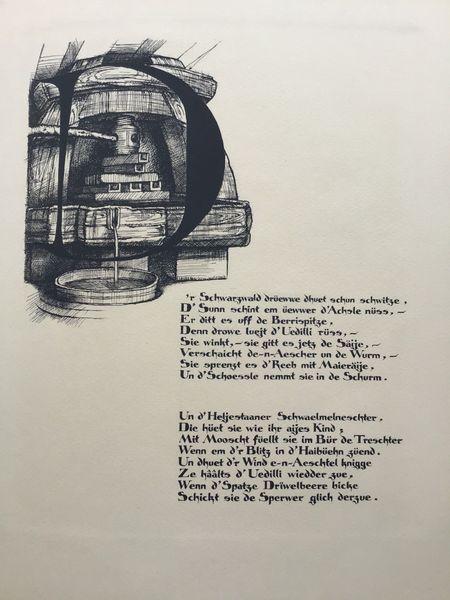 D'r Schwarzwald drüewwe dhuet schun schwitze,
D'Sunn schint em üewwer d'Achsle nüss, –
Er ditt es uff de Berrispitze,
Denn drowe luejt d'Uedilli rüss, –
Sie winkt, – sie gitt es jetz de Säije, –
Verschaicht de-n-Aescher un de Wurm, –
Sie sprenzt es d'Reeb mit Maieräije,
Un d'Schoessle nemmt sie in de Schurm.
Un d'Heljestaaner Schwaelmelneschter,
Die hüet sie wie ihr aijes Kind;
Mit Mooscht füellt sie im Bür de Treschter
Wenn em d'r Blitz in d'Haibüehn züend.
Un dhuet d'r Wind e-n-Aeschtel knigge
Ze hââlts d'Uedilli wiedder zue,
Wenn d'Spatze Drïwelbeere bicke
Schickt sie de Sperwer glich derzue.